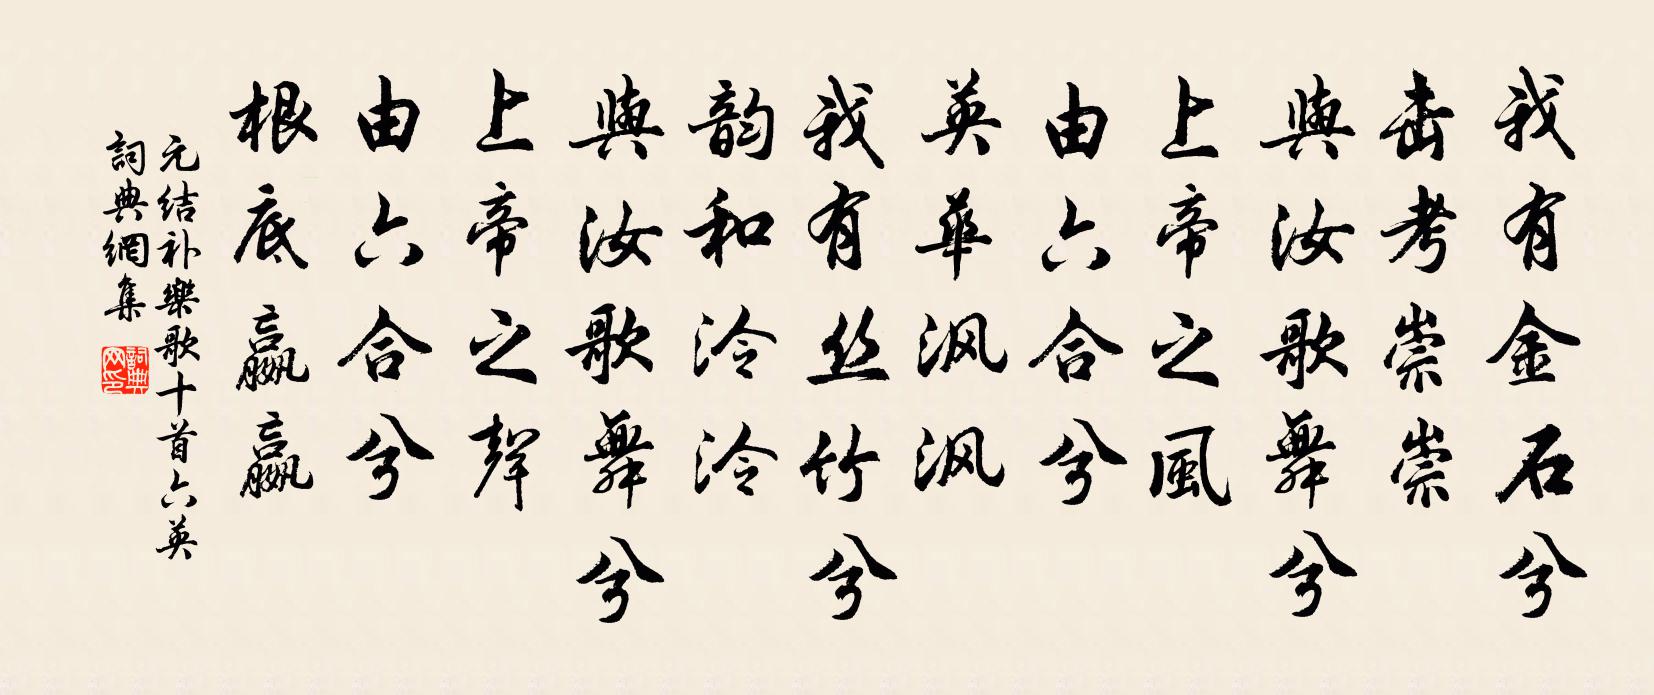 我有金石兮
击考崇崇
與汝歌舞兮
上帝之風
由六合兮
英華沨沨
我有丝竹兮
韵和泠泠
與汝歌舞兮
上帝之聲
由六合兮
根底嬴嬴
元结补樂歌十首六英
詞典網集
詞典网印